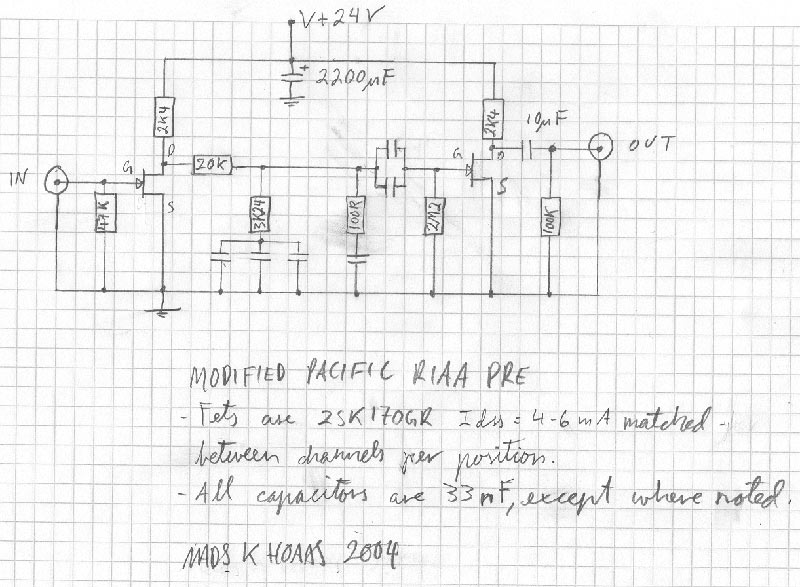 V+24V
+
2200µF
2K4
2K4
10µF
D
G
20K
G
D
OUT
IN
S
S
47K
3K24
100R
2M2
100K
MODIFIED PACIFIC RIAA PRE
- Fets are 2SK170GR Idss = 4-6 mA matched -
between channels per position.
- All capacitors are 33nF, except where noted.
MADS K HOAAS 2004